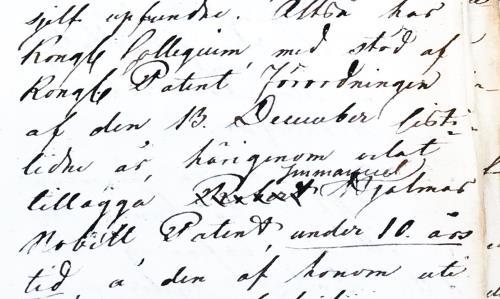 sjelf upfundne. Altså har
Kongl Collegium, med stöd af
Kongl Patent Förordningen
af den 13. December sist-
lidne år, härigenom velat
Immanuel
tillägga Hjalmar
Nobell Patent, under 10. års
tid å den af honom